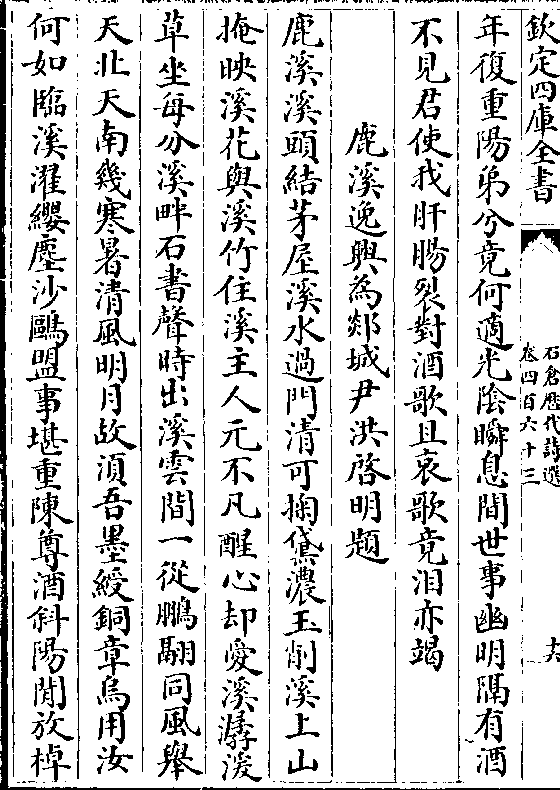 欽定四庫全書
石倉歴代詩選
卷四百六十三
十六
年復重陽弟兮竟何適光陰瞬息間世事幽明隔有酒
不見君使我肝腸裂對酒歌且哀歌竟泪亦竭
鹿溪逸興為郯城尹洪啓明題
鹿溪溪頭結茅屋溪水過門清可掬黛濃玉削溪上山
掩映溪花與溪竹住溪主人元不凡醒心却愛溪潺湲
草坐每分溪畔石書聲時出溪雲間一從鵬翮同風舉
天北天南幾寒暑清風明月故須吾墨綬銅章烏用汝
何如臨溪濯纓塵沙鷗盟事堪重陳尊酒斜陽閒放棹